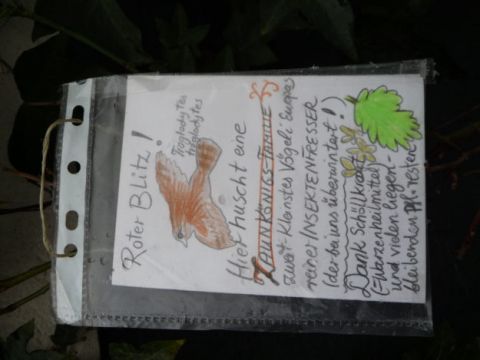 Roter Blitz!
Troglodytes
troglodytes
Hier huscht eine
ZAUNKÖNIGS-FAMILIE
zweit kleinstes Vögeli Europas
reiner INSEKTENFRESSER
(der bei uns überwintert!)
Dank Schöllkraut
(=Warzenheilmittel)
und vielen liegen-
bleibenden Pfl.resten